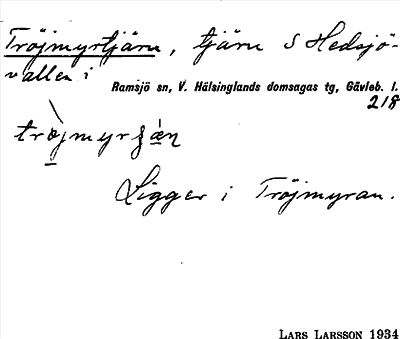 Tröjmyrtjärn, tjärn S Hedsjö-
vallen i
Ramsjö sn, V. Hälsinglands domsagas tg, Gävleb. l.
218
Ligger i Tröjmyran.
LARS LARSSON 1934